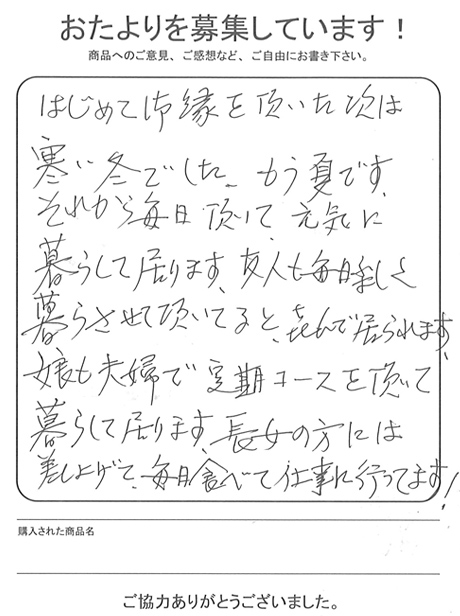 おたよりを募集しています！
商品へのご意見、ご感想など、ご自由にお書き下さい。
はじめて御縁を頂いた頃は
寒い冬でした。もう夏です。
それから毎日頂いて元気に
暮らして居ります。友人も毎日楽しく
暮らさせて頂いてると、喜んで居られます。
娘も夫婦で定期コースを頂いて
暮らして居ります。長女の方には
差し上げて、毎日食べて仕事に行ってます！
購入された商品名
ご協力ありがとうございました。